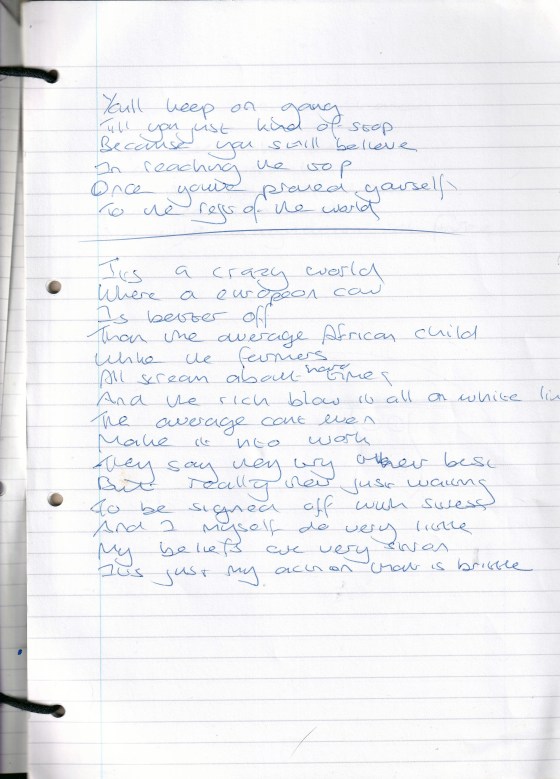 Youll keep on going
Till you just kind of stop
Because you still believe
In reaching the top
Once youve proved yourself
To the rest of the world
It's a crazy world
Where a european cow
Is better off
Than the average African child
While the farmers
All scream about hard times
And the rich blow it all on white lin
The average cant even
Make it into work
They say they try their best
But really their just waiting
To be signed off with stress
And I myself do very little
My beliefs are very
Its just my action that is brittle